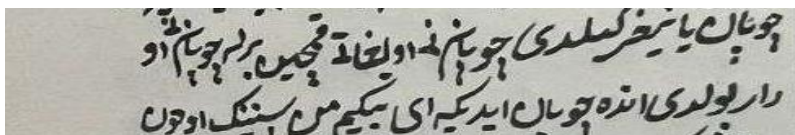 چوپان یانیغه کیلدی چوپان نی اولغاتی قمچین برله چوپان نی او
دار بولدی انده چوپان ایدیکه ای بیکیم من سیننک اوچون